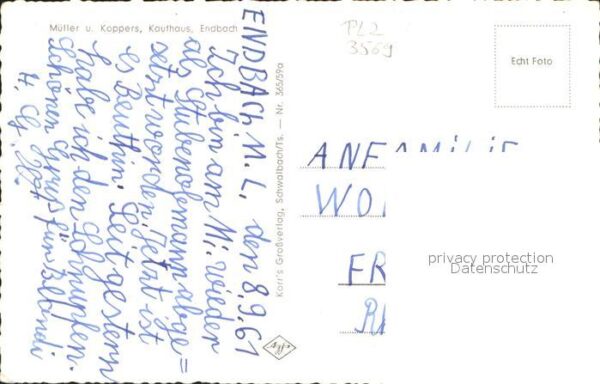 Müller u. Koppers, Kaufhaus, Endbach
ENDBACH M. L. den 8.9.61
Ich bin am Mi. wieder
als Stubenofmann abge=
setzt worden. Jetzt ist
es Beuthin. Seit gestern
habe ich den Schnupfen.
Schönen Gruß für Blondi
H.
Korr's Großverlag, Schwalbach/Ts. — Nr. 365/59a
PLZ
3569
Echt Foto
AN FAMILIE
WO
FR
privacy protection
Datenschutz